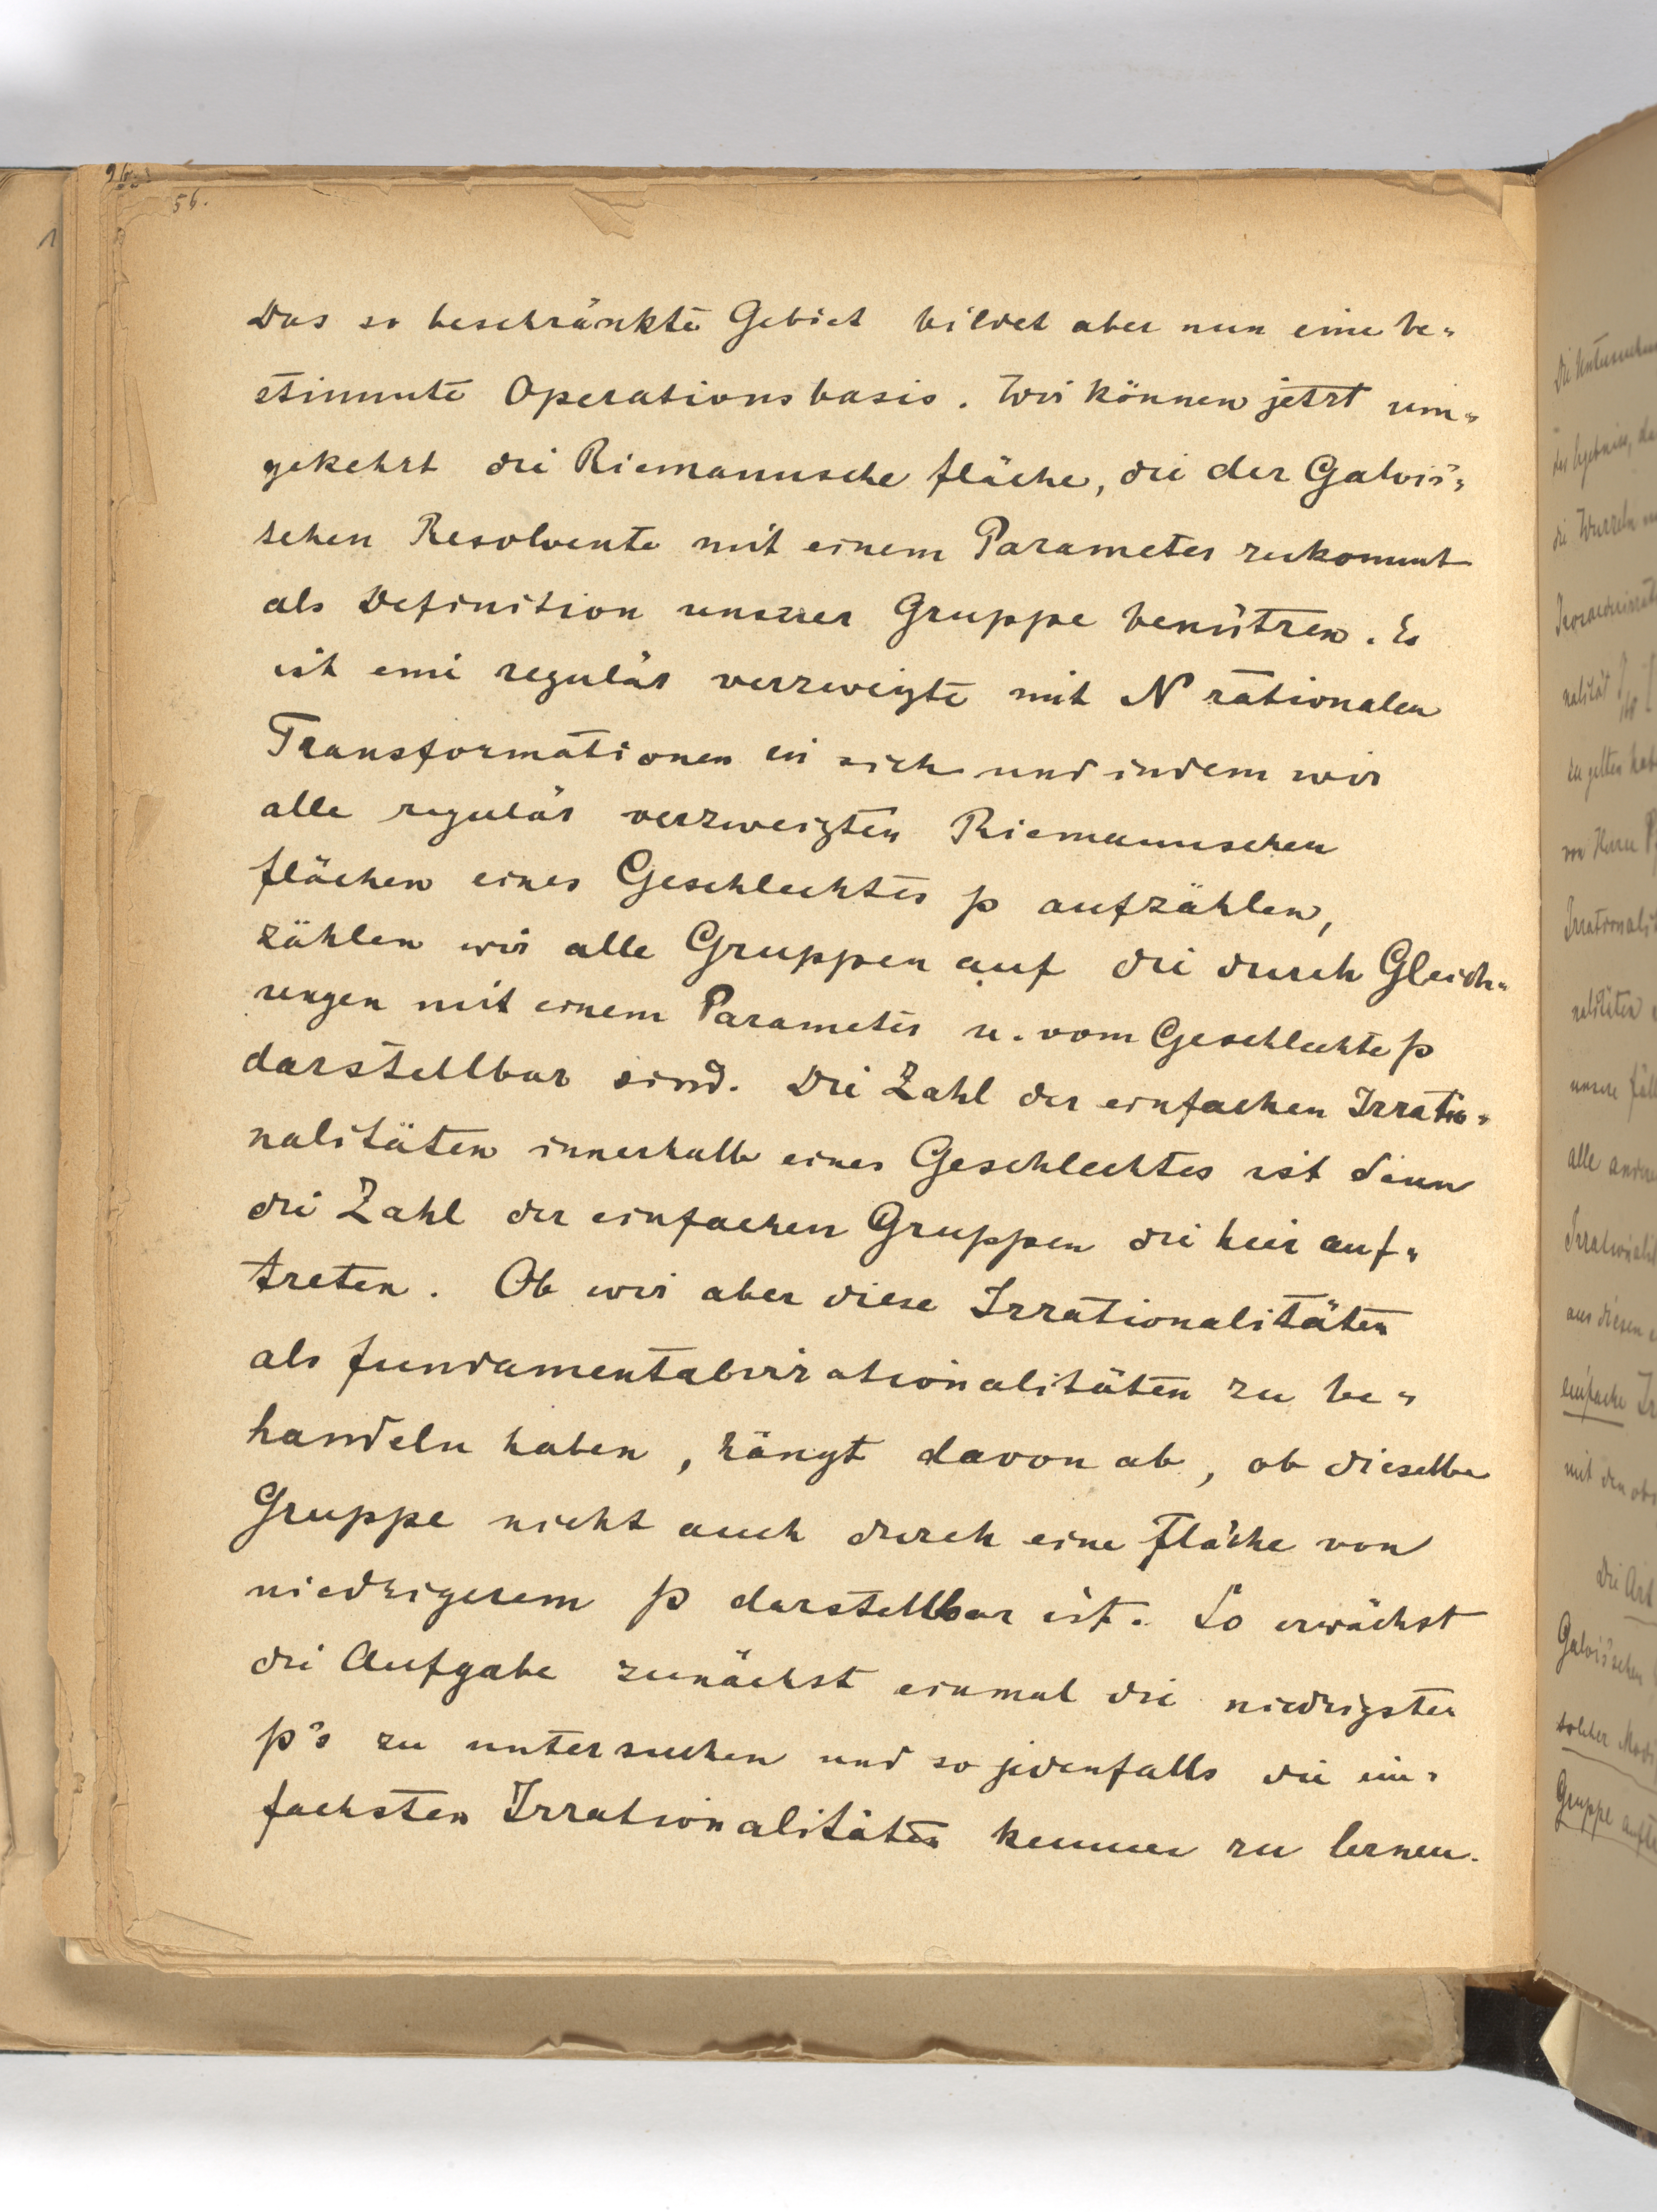 56.
Das so beschränkte Gebiet bildet aber nun eine be-
stimmte Operationsbasis. Wir können jetzt um-
gekehrt die Riemannsche Fläche, die der Galois'-
schen Resolvente mit einem Parameter zukommt
als Definition unserer Gruppe benützen. Es
ist eine regulär verzweigte mit N rationalen
Transformationen in sich und indem wir
alle regulär verzweigten Riemannschen
Flächen eines Geschlechtes p aufzählen,
zählen wir alle Gruppen auf die durch Gleich-
ungen mit einem Parameter u. vom Geschlechte p
darstellbar sind. Die Zahl der einfachen Irratio-
nalitäten innerhalb eines Geschlechtes ist dann
die Zahl der einfachen Gruppen die hier auf-
treten. Ob wir aber diese Irrationalitäten
als Fundamentalirrationalitäten zu be-
handeln haben, hängt davon ab, ob dieselbe
Gruppe nicht auch durch eine Fläche von
niedrigerem p darstellbar ist. So erwächst
die Aufgabe zunächst einmal die niedrigsten
p's zu untersuchen und so jedenfalls die ein-
fachsten Irrationalitäten kennen zu lernen.
die Wurzeln
nalität
zu gelten
von Herrn
unsere
alle
aus diesen
einfache
mit den
Die Art
Galois'schen
solcher
Gruppe